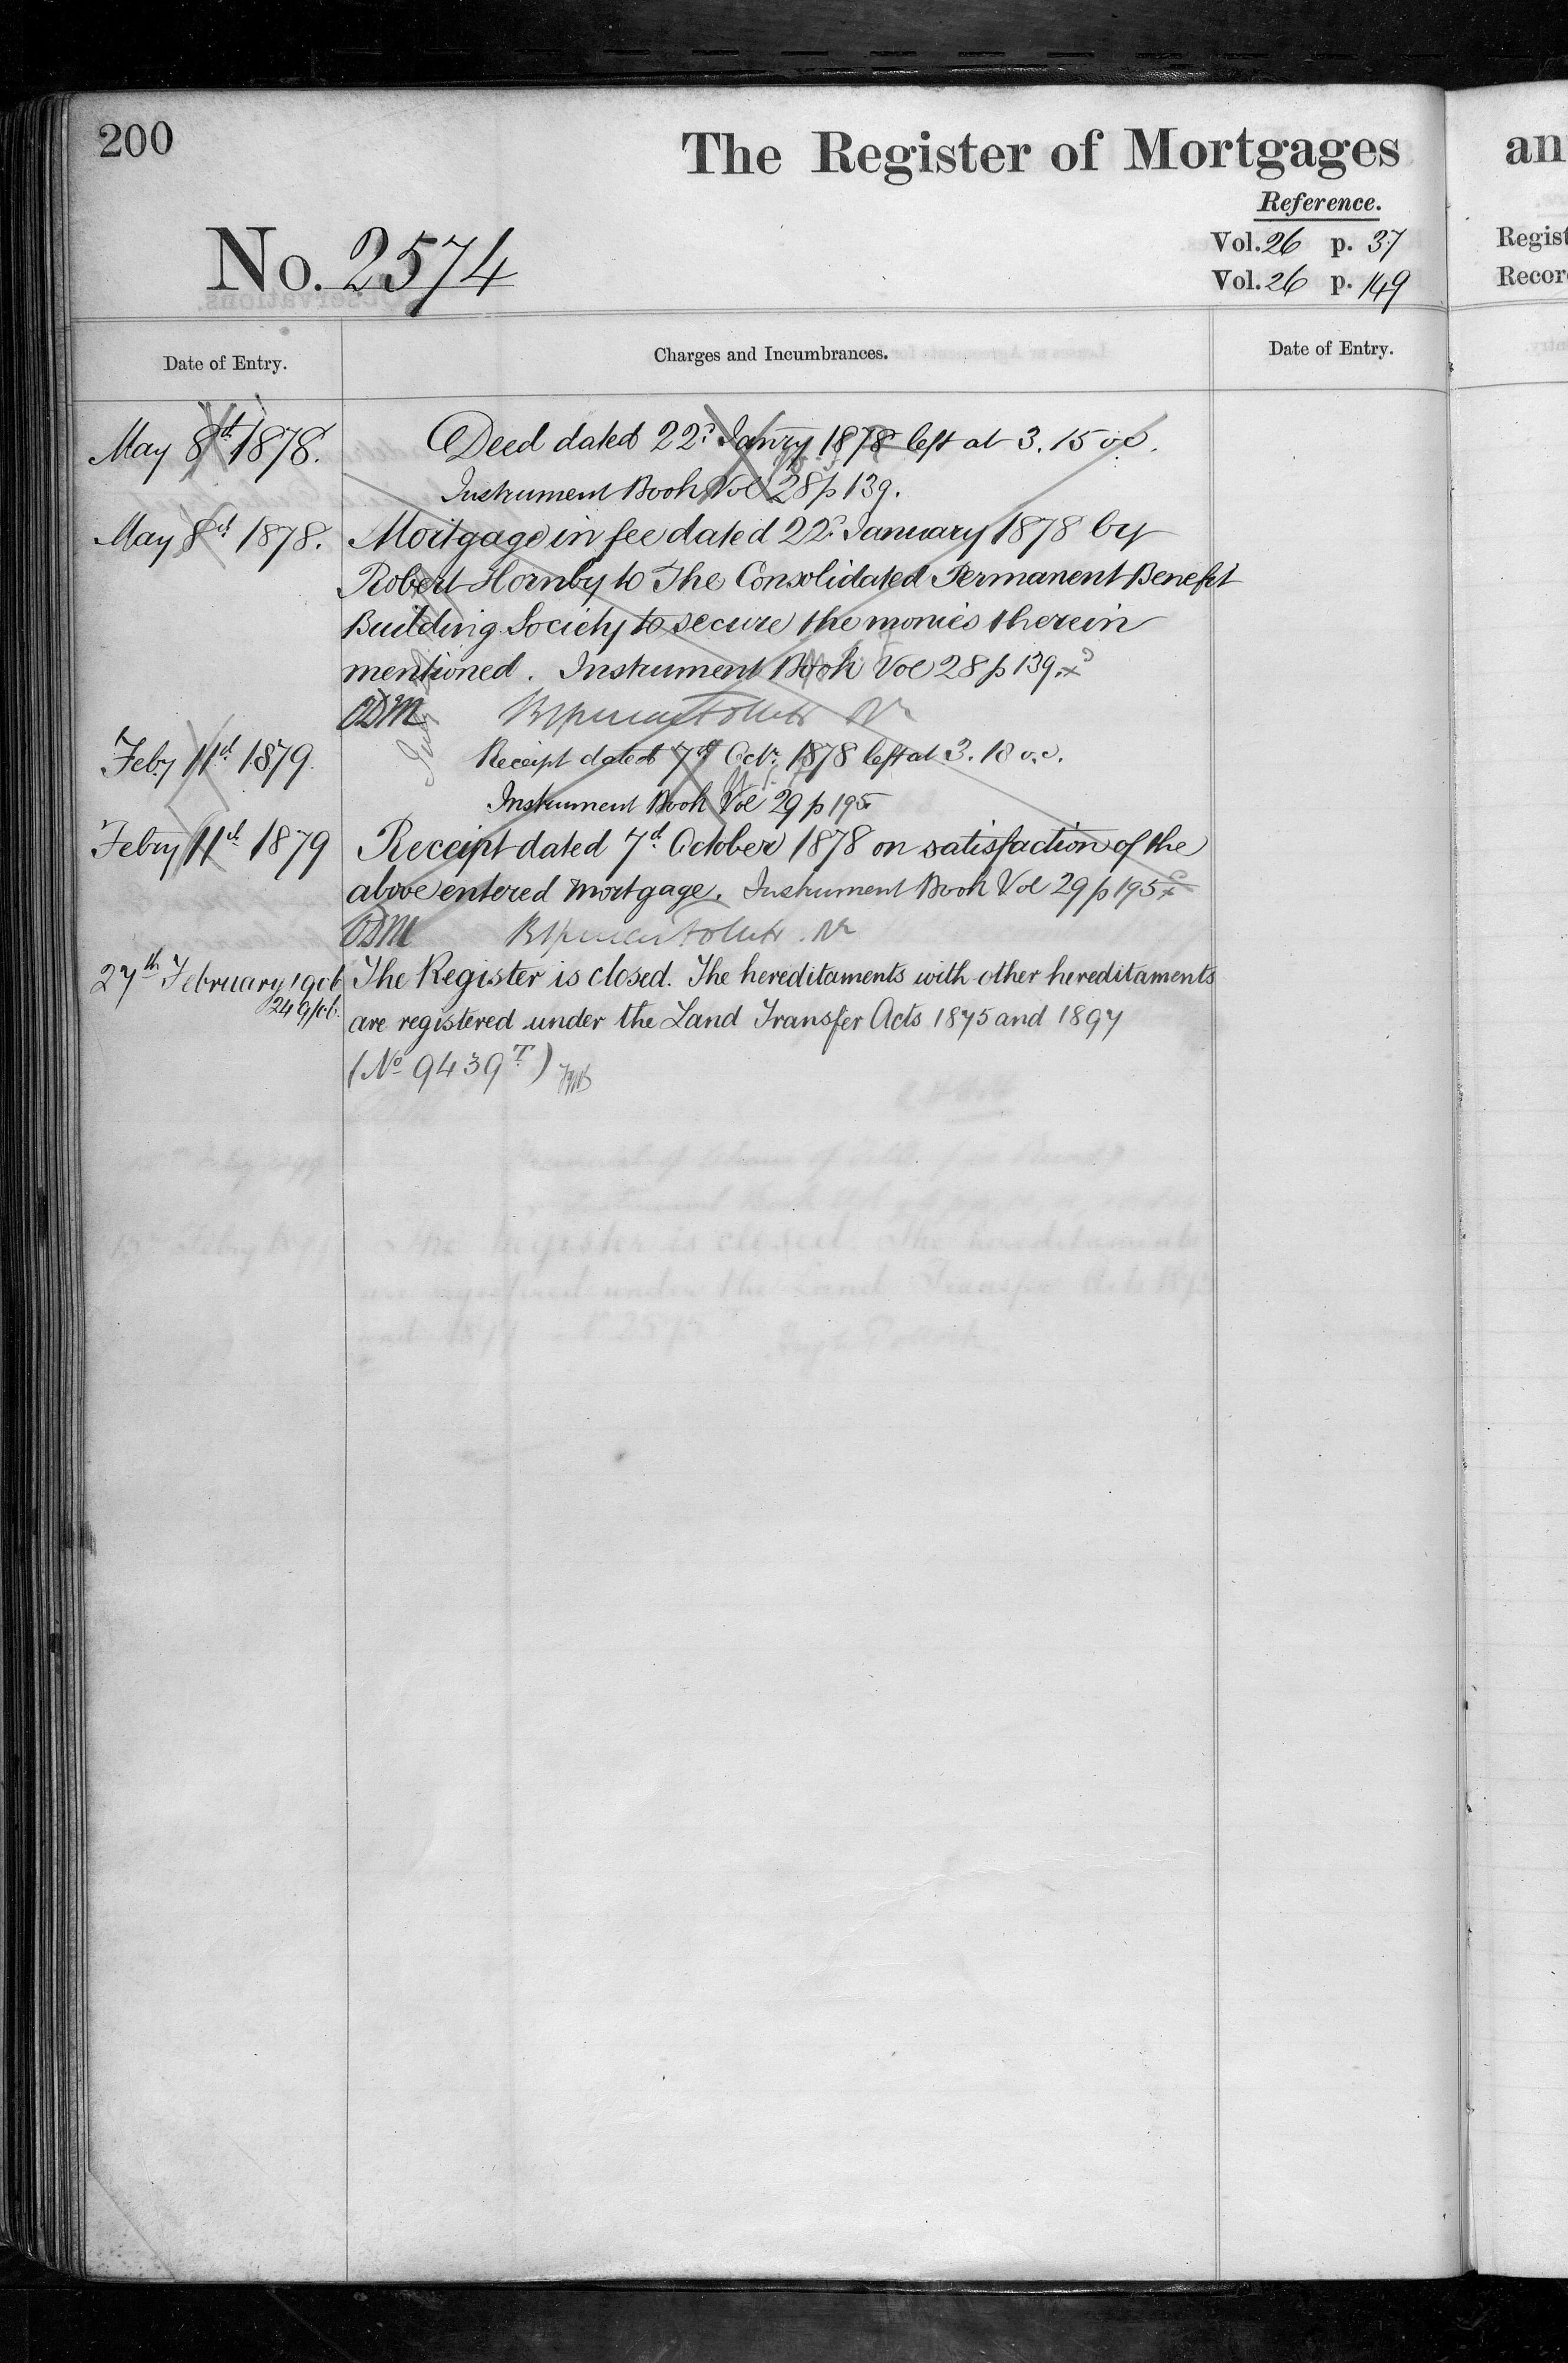 200
The Register of Mortgages
an
Reference.
Vol. 26 p. 37
Vol. 26 p. 149
Regist
Record
No. 2574
Date of Entry.
Charges and Incumbrances.
Date of Entry.
May 8th 1878. Deed dated 22d Janry 1878 left at 3.15 o.c.
Instrument Book Vol 28 p 139.
May 8th 1878. Mortgage in fee dated 22d January 1878 by
Robert Hornby to The Consolidated Permanent Benefit
Building Society to secure the monies therein
mentioned. Instrument Book Vol 28 p 139.
ODM
Feby 11th 1879. Receipt dated 7th Octr. 1878 left at 3.18 o.c.
Instrument Book Vol 29 p 195
Febry 11th 1879 Receipt dated 7th October 1878 on satisfaction of the
above entered mortgage. Instrument Book Vol 29 p 195
ODM
27th February 1906 The Register is closed. The hereditaments with other hereditaments
249/06. are registered under the Land Transfer Acts 1875 and 1897
(No 9439T)